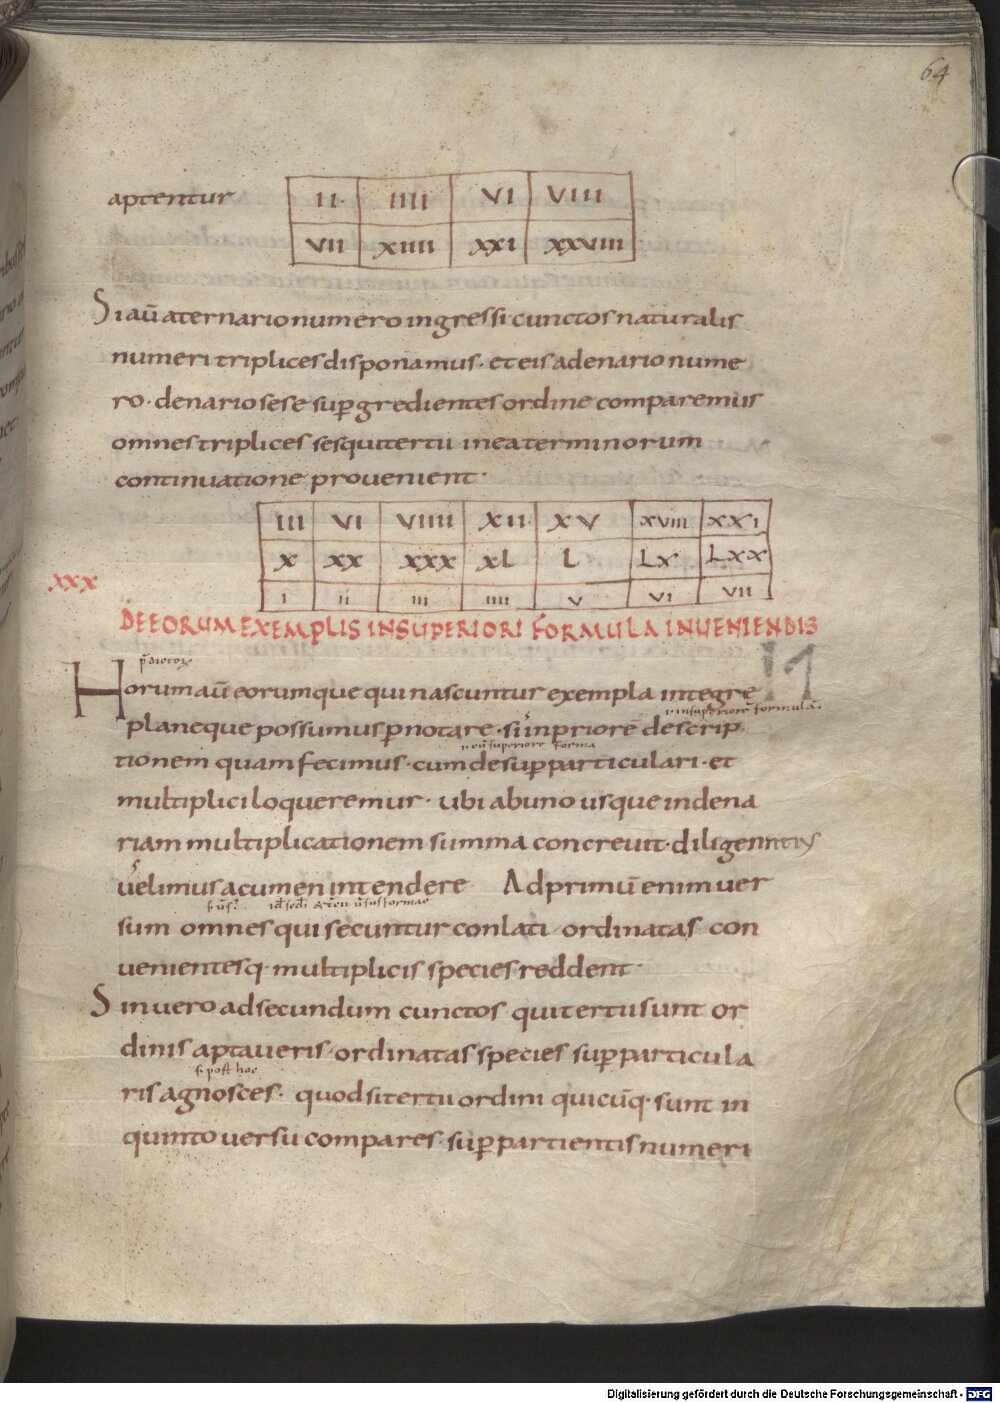 64
aptentur
II· IIII VI VIII
VII XIIII XXI XXVIII
Si aū a ternario numero ingressi cunctos naturalis
numeri triplices disponamus· et eis a denario nume
ro· denario sese sup̱gredientes ordine comparemus
omnes triplices sesquitertii in ea terminorum
continuatione provenient·
III VI VIIII XII· XV XVIII XXI
X XX XXX XL L LX LXX
I II III IIII V VI VII
XXX
DE EORUM EXEMPLIS IN SUPERIORI FORMULA INUENIENDIS
Horum aū eorumque qui nascuntur exempla integre
planeque possumus p̱notare· si in priorē descrip
tionem quam fecimus· cum de sup̱particulari· et
multiplici loqueremur· ubi ab uno usque in dena
riam multiplicationem summa concrevit· diligentius
velimus acumen intendere Ad primū enim ver
sum omnes qui secuntur conlati ordinatas con
venientesq· multiplicis species reddent·
Sin vero ad secundum cunctos qui tertii sunt or
dinis aptaveris· ordinatas species sup̱particula
s· post hoc
ris agnosces· quod si tertii ordini quicūq· sunt in
quinto versu compares· sup̱partientis numeri
Digitalisierung gefördert durch die Deutsche Forschungsgemeinschaft - DFG